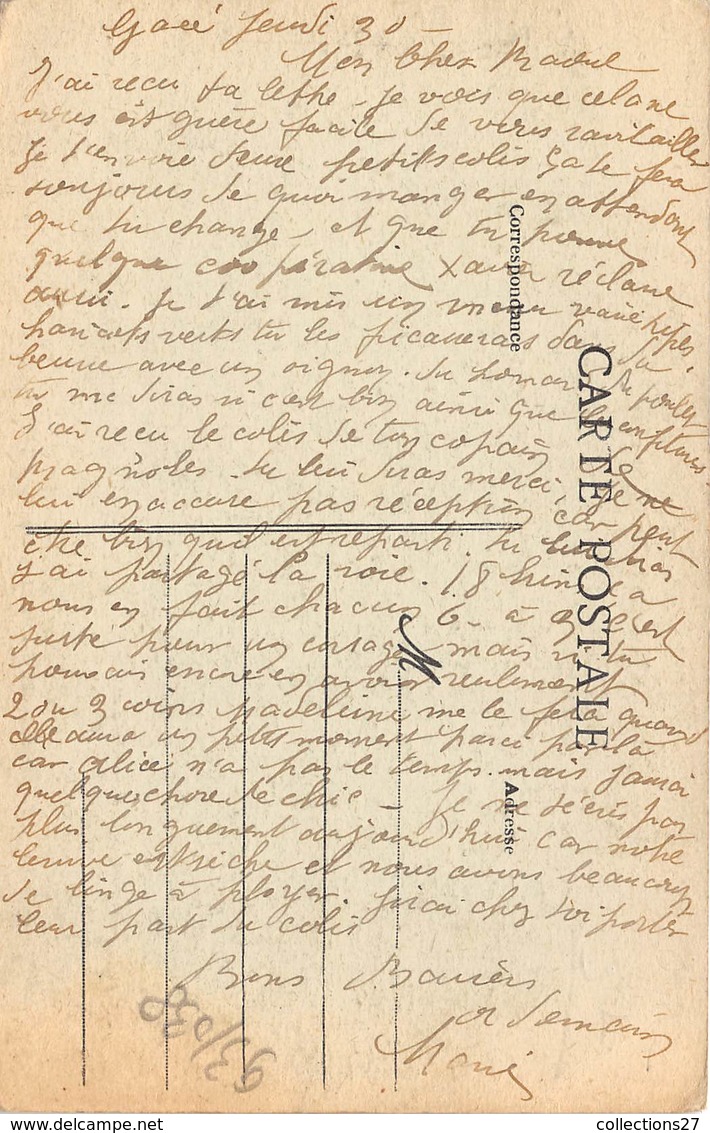 Gacé Jeudi 30 -
Mon Cher Raoul
J'ai recu ta lettre. Je vois que cela ne
vous est guère facile de vous ravitailler
Je t'envoie deux petits colis ça te fera
toujours de quoi manger en attendant
que tu change, et que tu
quelque Xavier réclame
aussi. Je t'ai mis un
haricots verts tu les dans du
beurre avec un oignon. du homard du poulet
tu me diras si c'est bon ainsi que confitures.
J'ai recu le colis de ton copain de
. tu lui diras merci, je ne
lui en accuse pas réception car peut
etre bien qu'il est reparti. tu
J'ai partagé la soie. 18 ça
nous en fait chacun 6. à 3 c'est
juste pour un corsage mais si tu
pouvais encore en avoir seulement
2 ou 3 Madeleine me le fera quand
elle aura un petit moment parci par là
car Alice n'a pas le temps. mais j'aurai
quelque chose de chic - Je ne t'écris pas
plus longuement aujourd'hui car notre
est sèche et nous avons beaucoup
de linge à ployer. J'irai chez toi porter
leur part du colis
Bons Baisers
a demain
Marie
M
CARTE POSTALE
Correspondance
Adresse
93/038
collections27